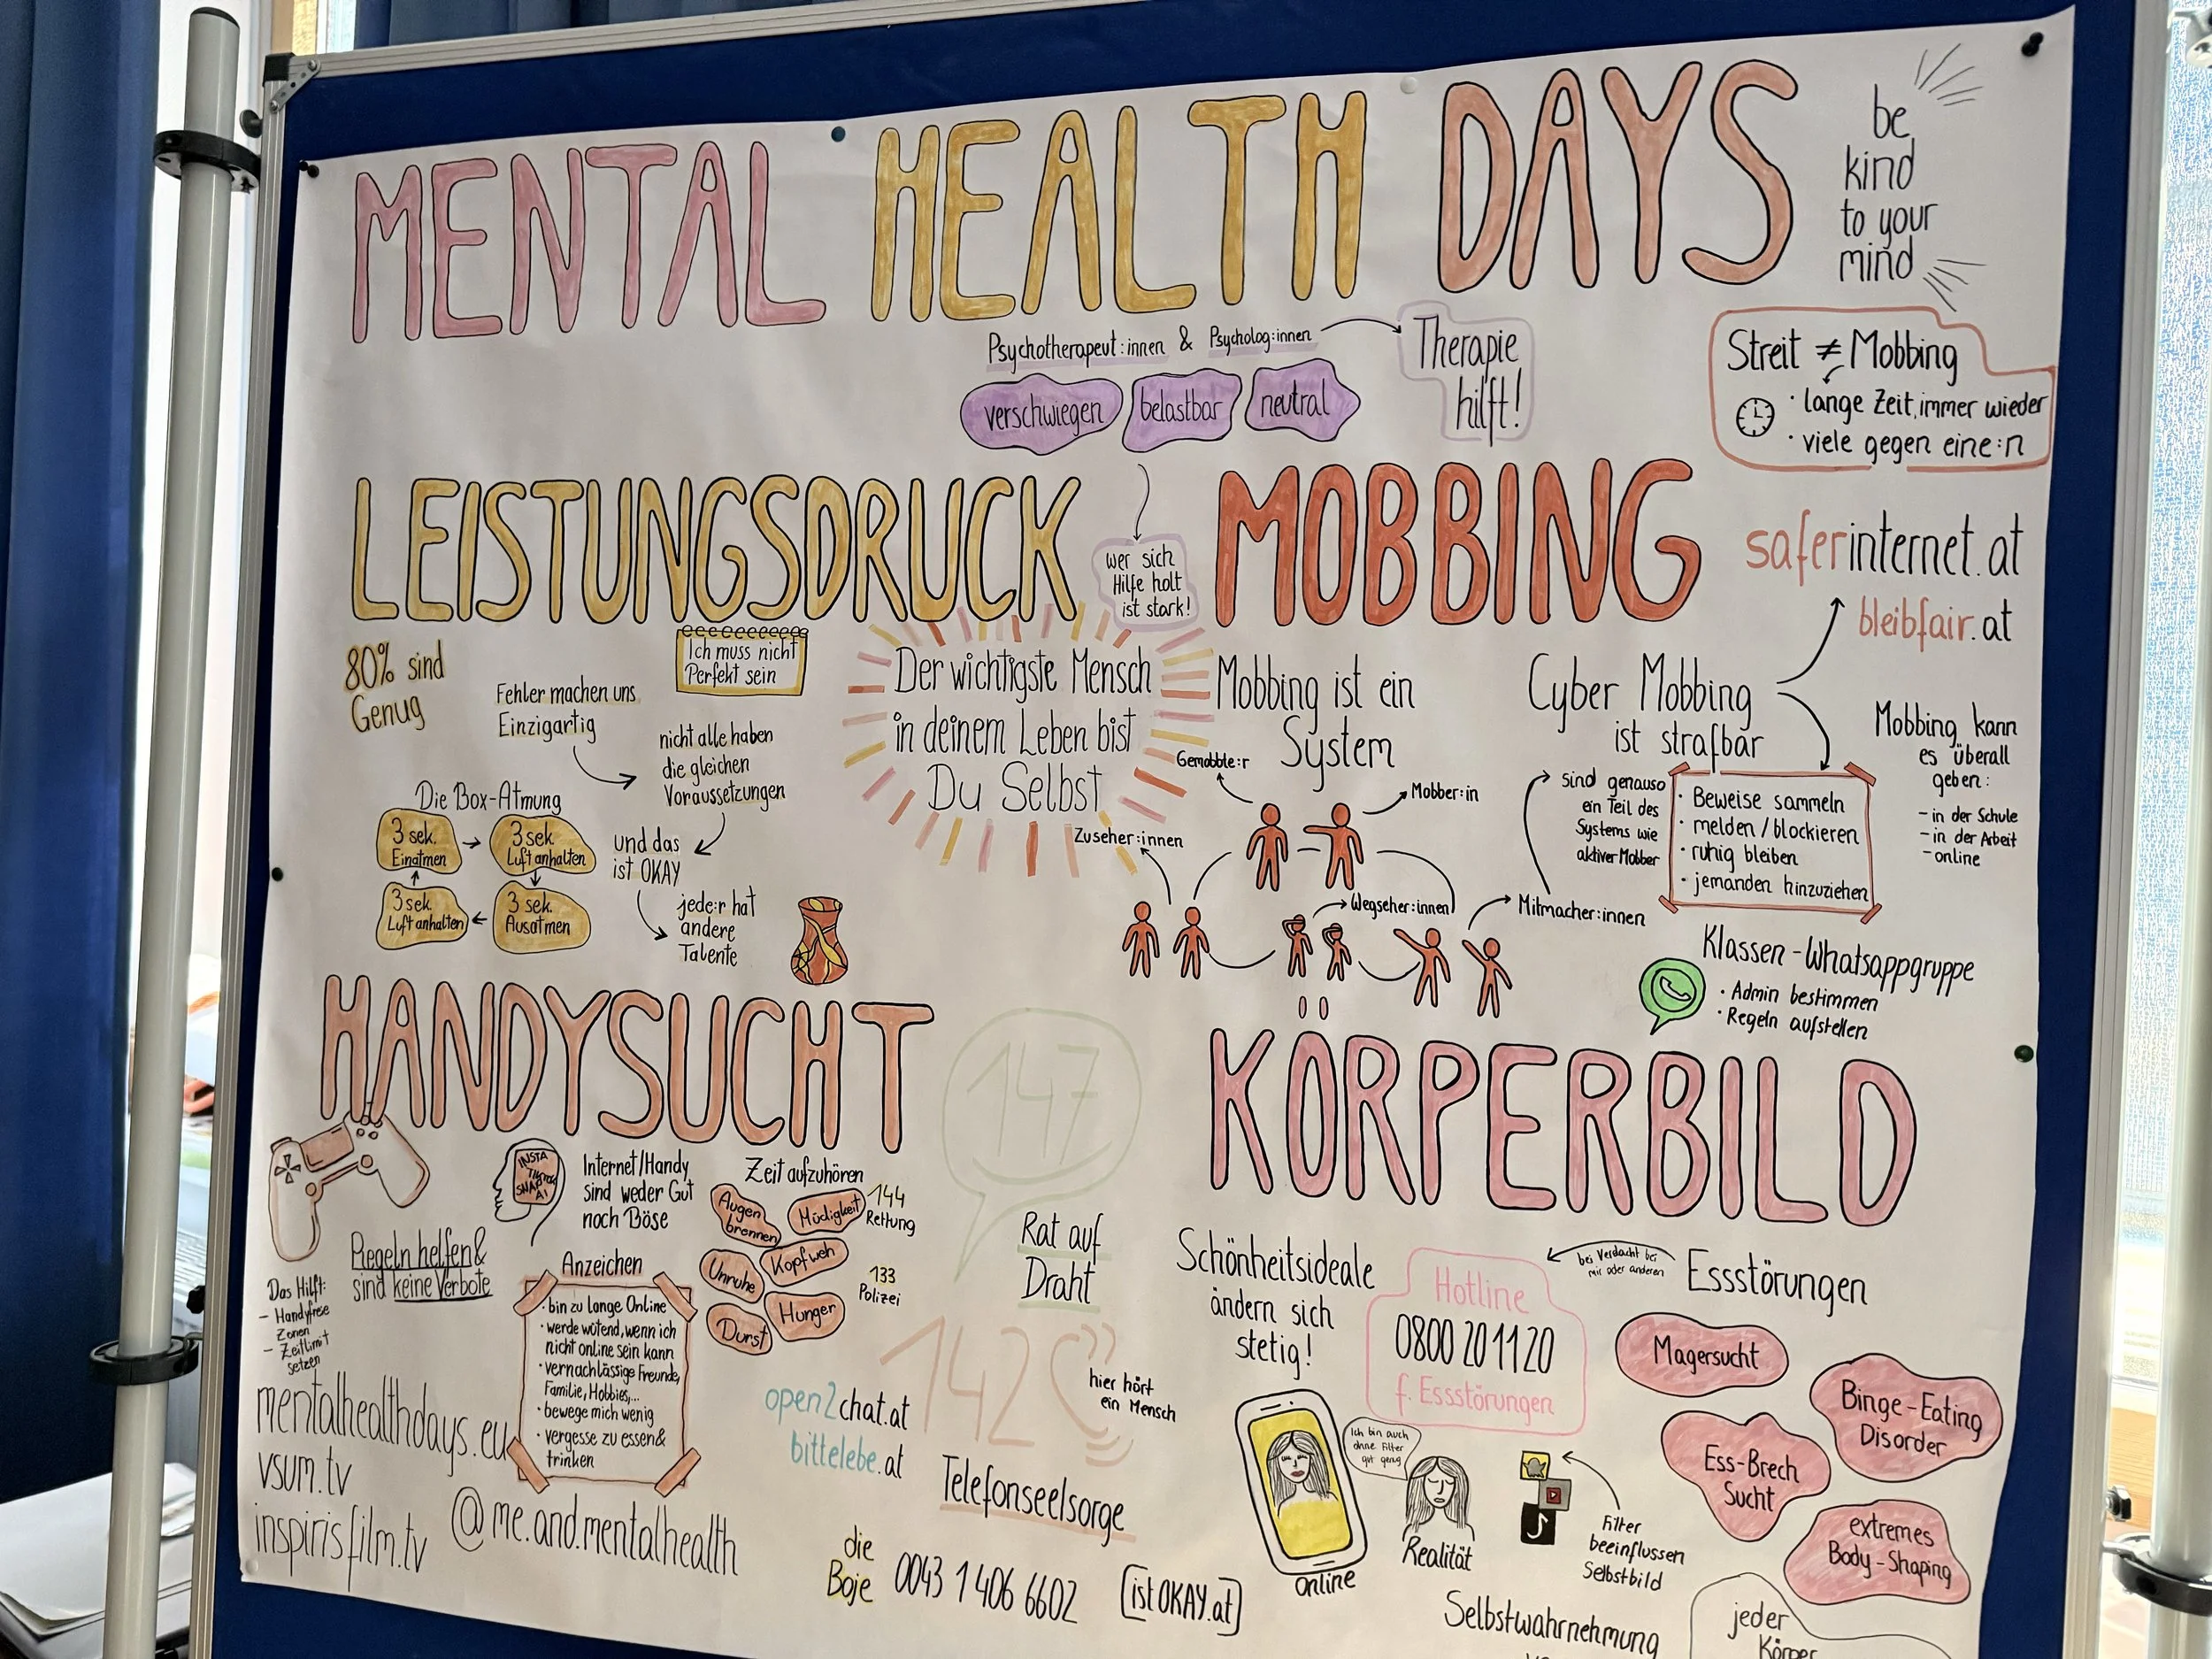 MENTAL HEALTH DAYS
be
kind
to your
mind
Psychotherapeut:innen & Psycholog:innen
Therapie
hilft!
verschwiegen
belastbar
neutral
wer sich
Hilfe holt
ist stark!
Streit ≠ Mobbing
· lange Zeit, immer wieder
· viele gegen eine:n
LEISTUNGSDRUCK
80% sind
Genug
Ich muss nicht
Perfekt sein
Fehler machen uns
Einzigartig
nicht alle haben
die gleichen
Voraussetzungen
und das
ist OKAY
jede:r hat
andere
Talente
Die Box-Atmung
3 sek.
Einatmen
3 sek.
Luft anhalten
3 sek.
Ausatmen
3 sek.
Luft anhalten
Der wichtigste Mensch
in deinem Leben bist
Du Selbst
MOBBING
saferinternet.at
bleibfair.at
Mobbing ist ein
System
Gemobbte:r
Mobber:in
Zuseher:innen
Wegseher:innen
Mitmacher:innen
sind genauso
ein Teil des
Systems wie
aktiver Mobber
Cyber Mobbing
ist strafbar
· Beweise sammeln
· melden / blockieren
· ruhig bleiben
· jemanden hinzuziehen
Mobbing kann
es überall
geben:
- in der Schule
- in der Arbeit
- online
Klassen-Whatsappgruppe
· Admin bestimmen
· Regeln aufstellen
HANDYSUCHT
INSTA
SNAP
AI
Internet/Handy
sind weder Gut
noch Böse
Zeit aufzuhören
Augen
brennen
Müdigkeit
Unruhe
Kopfweh
Durst
Hunger
144
Rettung
133
Polizei
Regeln helfen &
sind keine Verbote
Das Hilft:
- Handyfreie
Zonen
- Zeitlimit
setzen
Anzeichen
· bin zu lange Online
· werde wütend, wenn ich
nicht online sein kann
· vernachlässige Freunde,
Familie, Hobbies,...
· bewege mich wenig
· vergesse zu essen &
trinken
mentalhealthdays.eu
vsum.tv
inspirisfilm.tv
@me.and.mentalhealth
147
Rat auf
Draht
142
hier hört
ein Mensch
Telefonseelsorge
open2chat.at
bittelebe.at
die
Boje
0043 1 406 6602
istOKAY.at
KÖRPERBILD
Schönheitsideale
ändern sich
stetig!
Hotline
0800 20 11 20
f. Essstörungen
bei Verdacht bei
mir oder anderen
Essstörungen
Magersucht
Binge-Eating
Disorder
Ess-Brech
Sucht
extremes
Body-Shaping
Ich bin auch
ohne Filter
gut genug
online
Realität
Filter
beeinflussen
Selbstbild
Selbstwahrnehmung
jeder
Körper